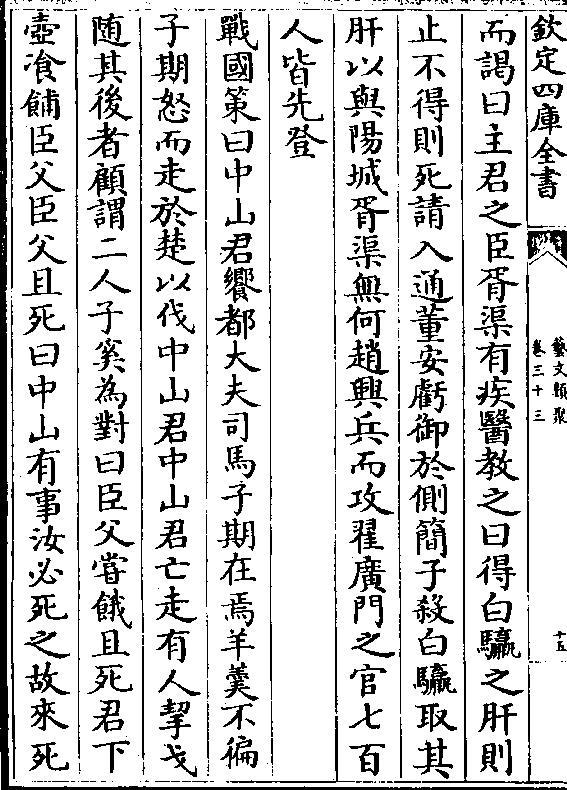 欽定四庫全書
藝文類聚
卷三十三
十五
而謁曰主君之臣胥渠有疾醫教之曰得白驘之肝則
止不得則死請入通董安虧御於側簡子殺白驘取其
肝以與陽城胥渠無何趙興兵而攻翟廣門之官七百
人皆先登
戰國策曰中山君饗都大夫司馬子期在焉羊羹不徧
子期怒而走於楚以伐中山君中山君亡走有人挈戈
随其後者顧謂二人子奚為對曰臣父嘗餓且死君下
壺飡餔臣父臣父且死曰中山有事汝必死之故來死